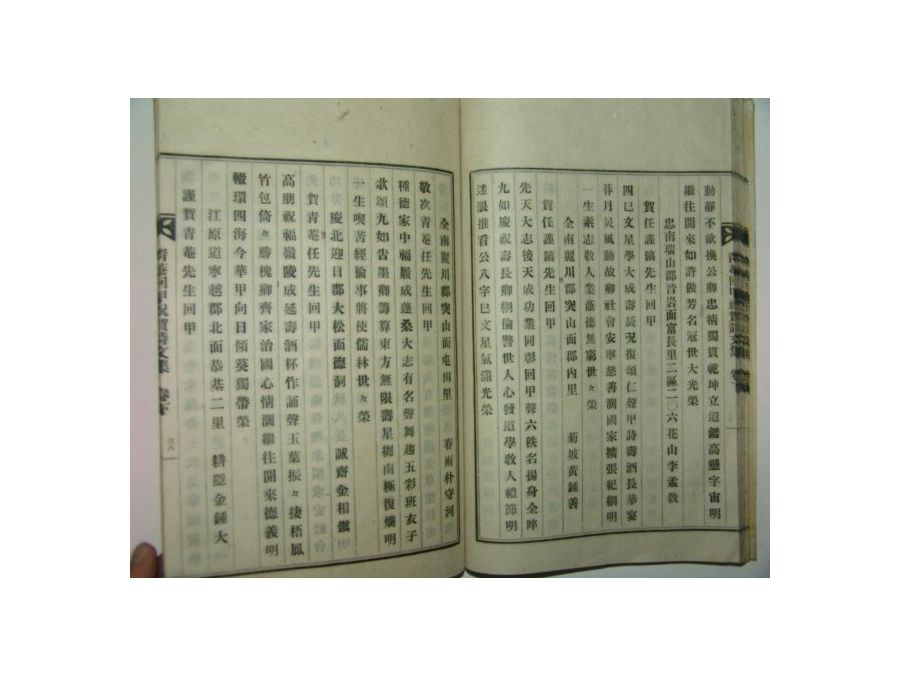 動靜不欲換公卿忠情獨貫乾坤立道鑑高懸字宙明
繼往開來如許做芳名冠世大光榮
忠南瑞山郡音岩面富長里二區二〇六花山李孟敎
賀任謹鎬先生回甲
四巳文星學大成壽辰况復頌仁聲甲詩壽酒長華宴
莽月吴風動故鄕社會安寧慈善潤國家擴張紀綱明
一生素志敎人業蔭德無窮世々榮
全南麗川郡突山面郡內里 菊坡黃鍾善
賀任謹鎬先生回甲
先天大志後天成功業同彰回甲聲六秩名揚身全晬
九如慶祝壽長卿朔倫警世人心發道學敎人禮節明
述眼推看公八字巳文星氣滿光榮
全南麗川郡突山面屯田里 春雨朴守河
敬次靑菴任先生回甲
種德家中福履成蓬桑大志有名聲舞趨五彩班衣子
歌頌九如告墨卿籌算東方無限壽星經南極復爛明
一生喫苦經綸事將使儒林世々榮
慶北迎日郡大松面德洞 誠齋金相鎭
賀靑菴任先生回甲
高朋祝福嶺陵成延壽酒杯作誦聲玉葉振々捿梧鳳
竹包倚々勝槐卿齊家治國心情濶繼往開來德義明
轍環四海今華甲向日傾葵獨帶榮
江原道寧越郡北面恭基二里 耕隱金鍾大
謹賀靑菴先生回甲
靑菴回甲祝賀詩文集 卷下